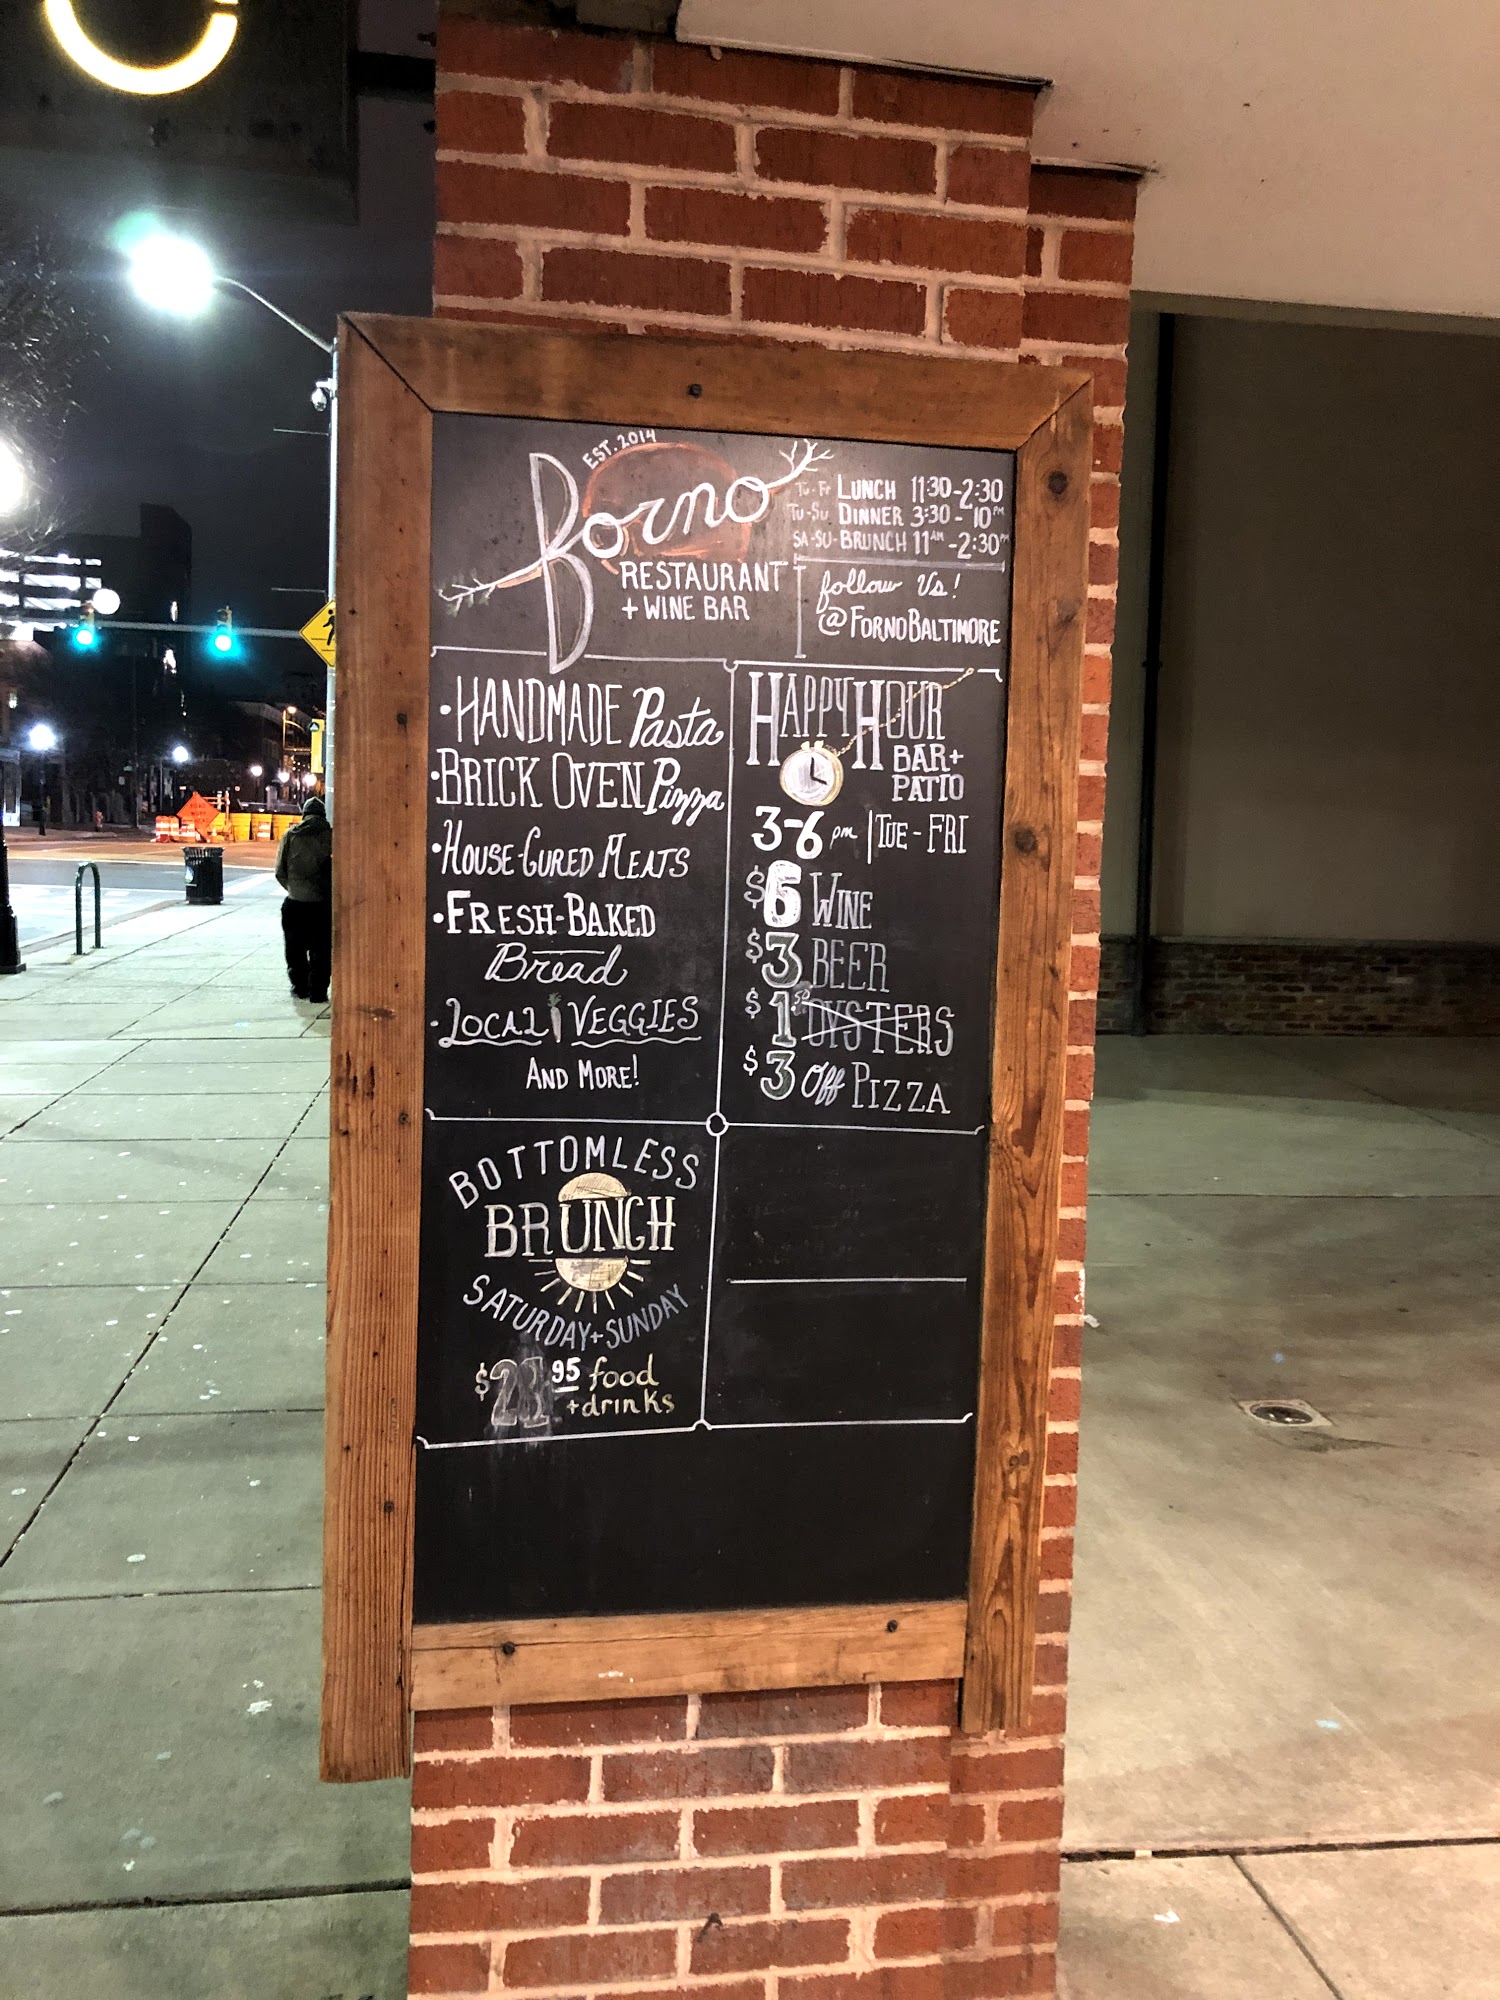 EST. 2014
Forno
RESTAURANT
+ WINE BAR
Tu-Fr LUNCH 11:30-2:30
Tu-Su DINNER 3:30-10PM
SA-SU-BRUNCH 11AM-2:30PM
follow Us!
@FORNOBALTIMORE
•HANDMADE Pasta
•BRICK OVEN Pizza
•HOUSE-CURED MEATS
•FRESH-BAKED
Bread
•LOCAL VEGGIES
AND MORE!
HAPPY HOUR
BAR+
PATIO
3-6 pm | TUE-FRI
$6 WINE
$3 BEER
$1 OYSTERS
$3 Off PIZZA
BOTTOMLESS
BRUNCH
SATURDAY+SUNDAY
$ 95 food
+drinks